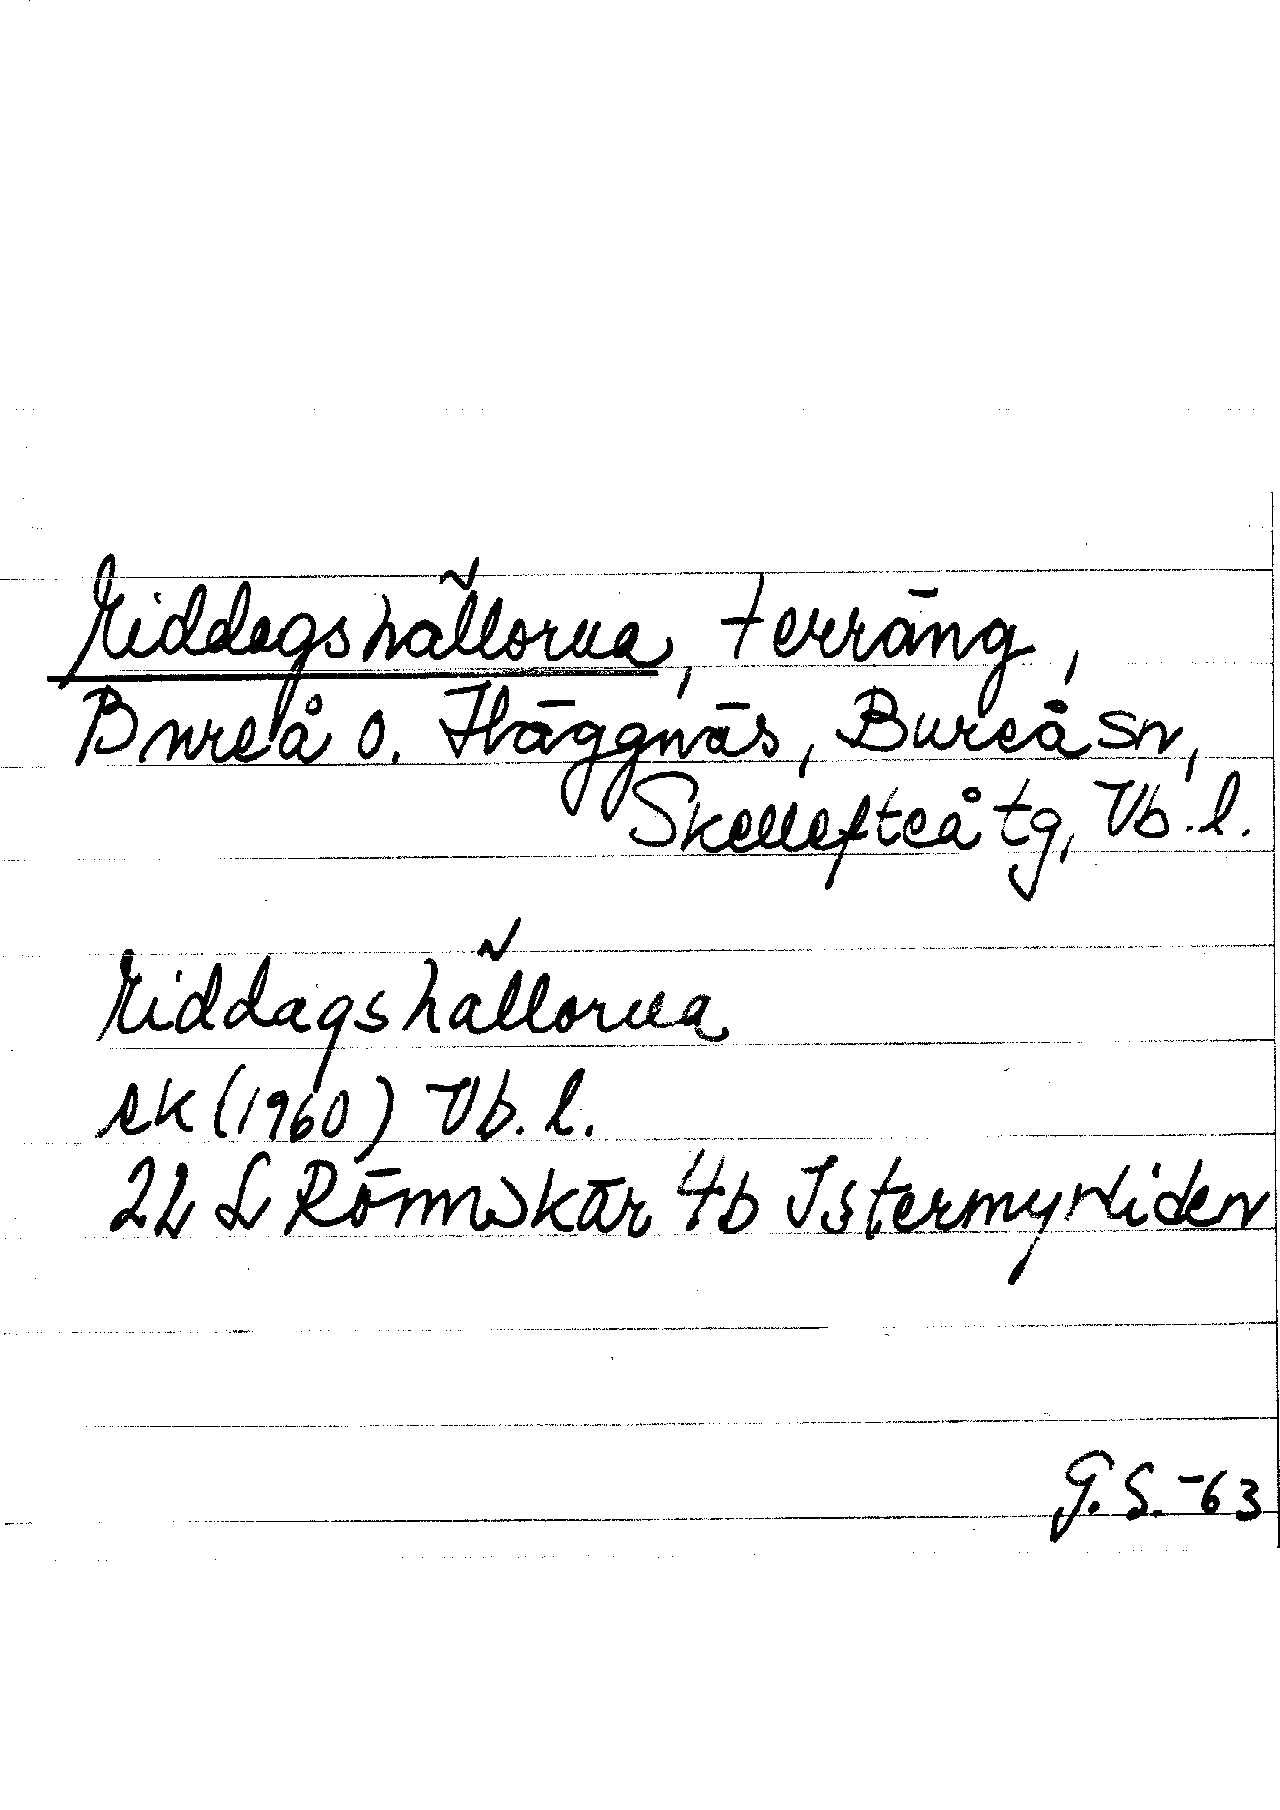 Middagshällorna, terräng,
Bureå o. Häggnäs, Bureå sn,
Skellefteå tg, Vb. l.
Middagshällorna
ek (1960) Vb. l.
22 L Rönnskär 4b Istermyrliden
G. S. -63